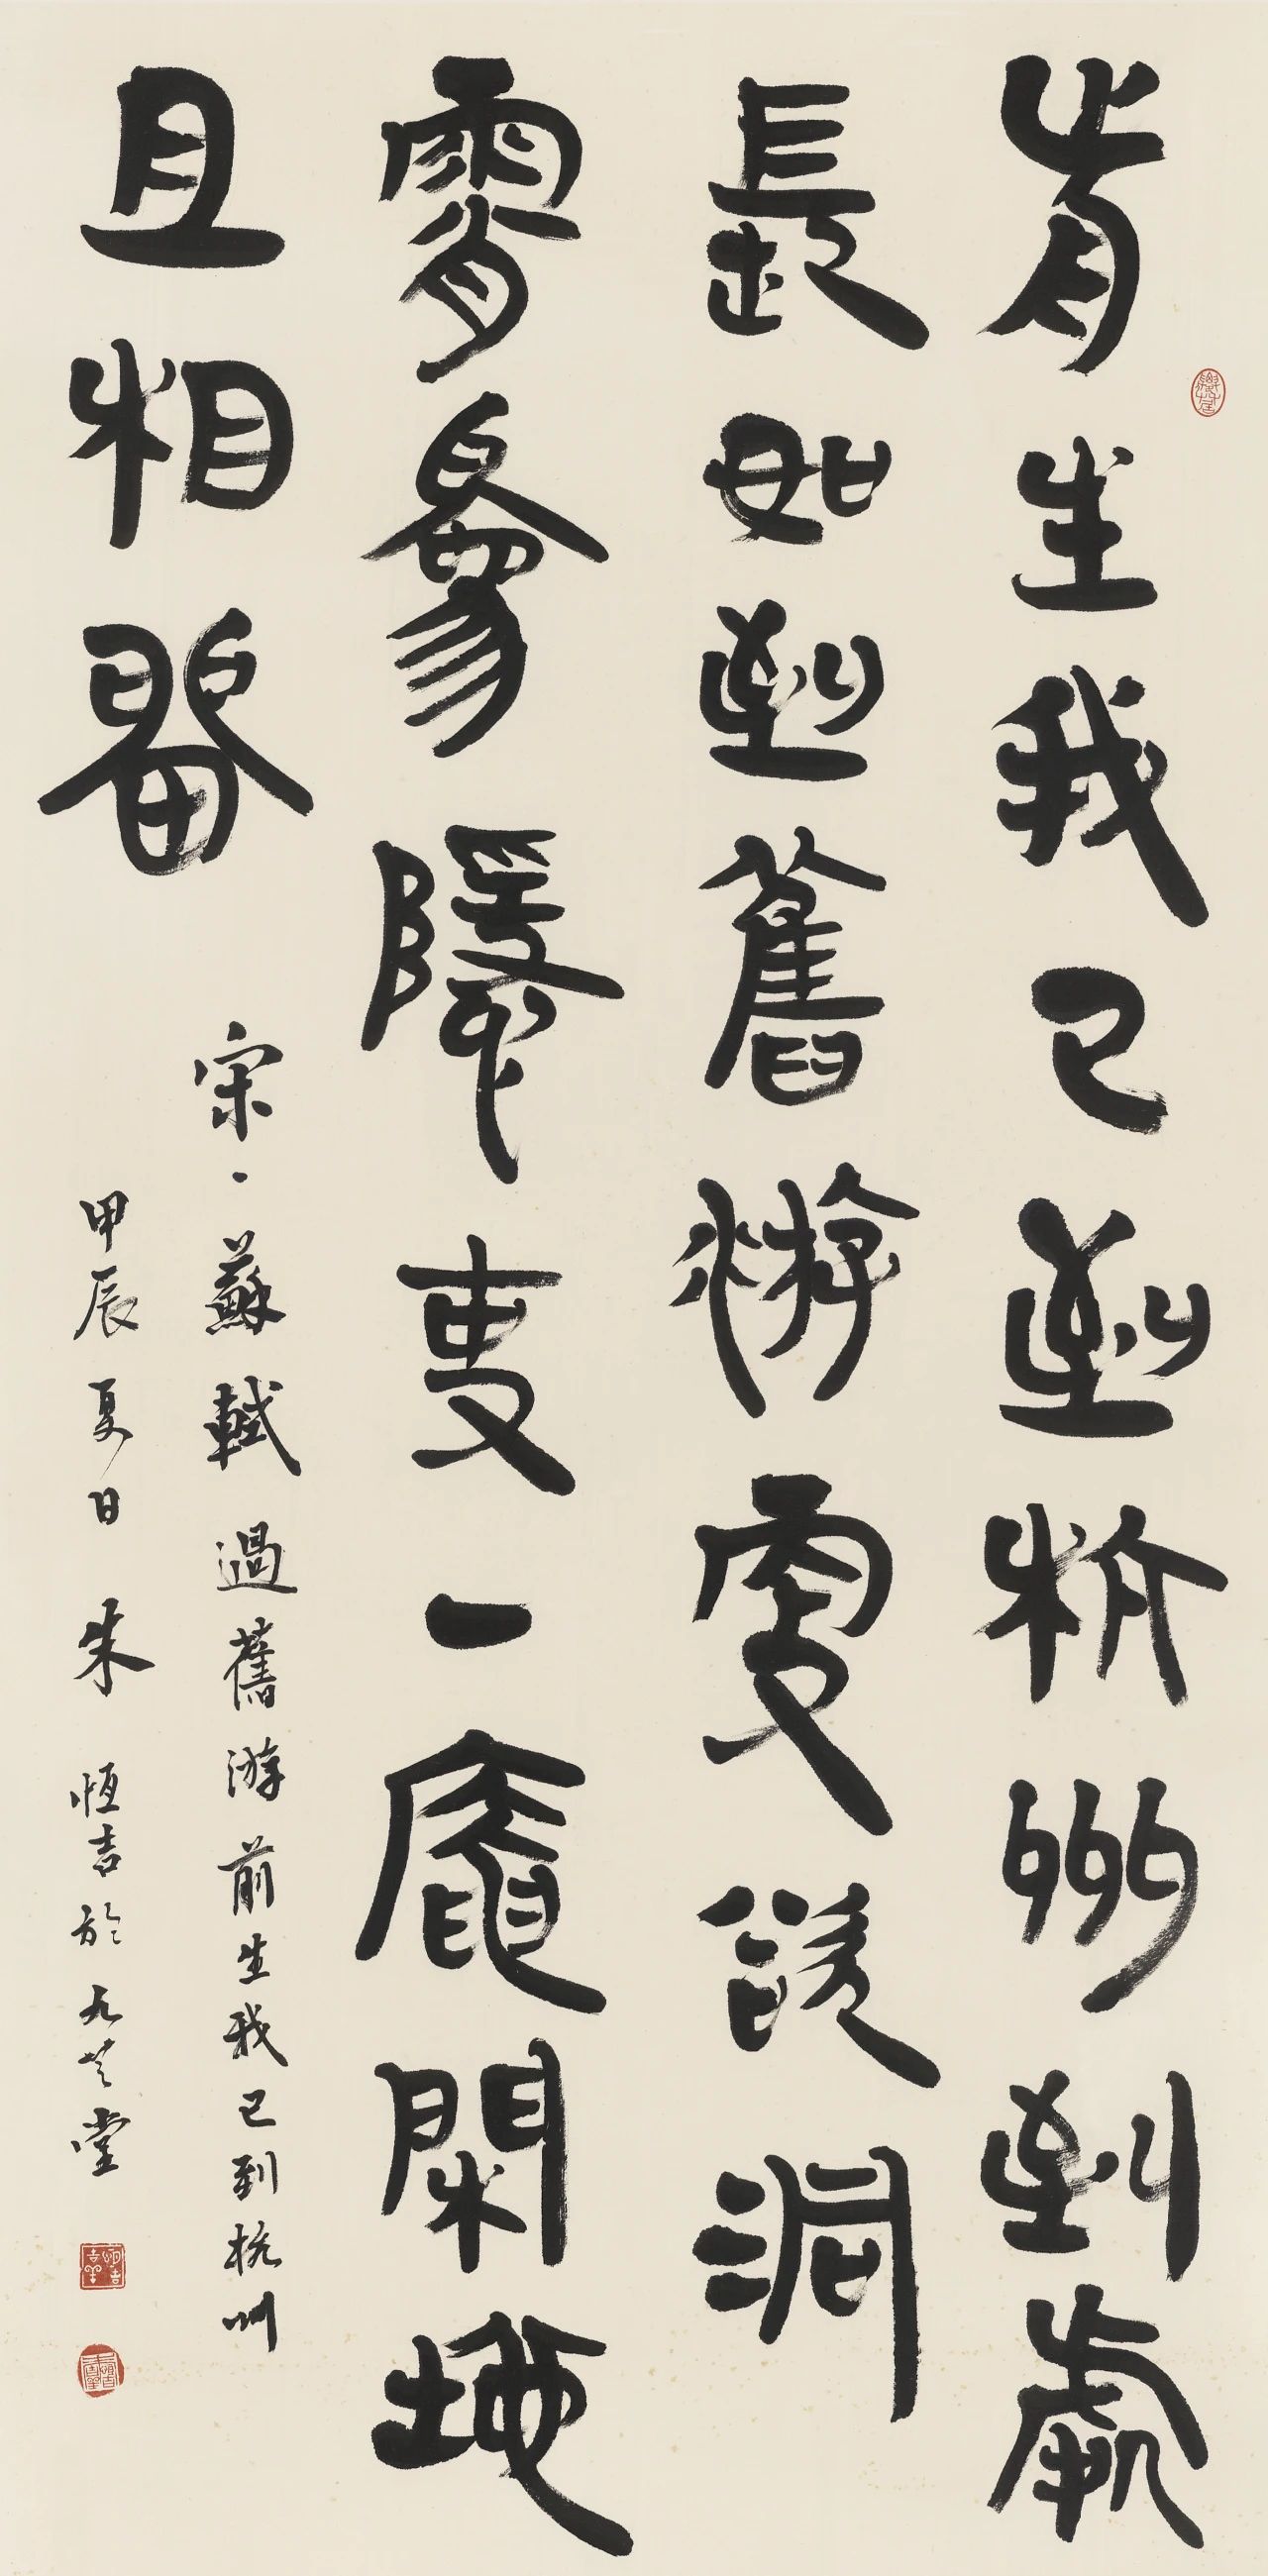 前生我已到杭州到處
長如到舊游更欲洞
霄為隱吏一庵閑地
且相留
宋、蘇軾過舊游前生我已到杭州
甲辰夏日朱恆吉於九芝堂